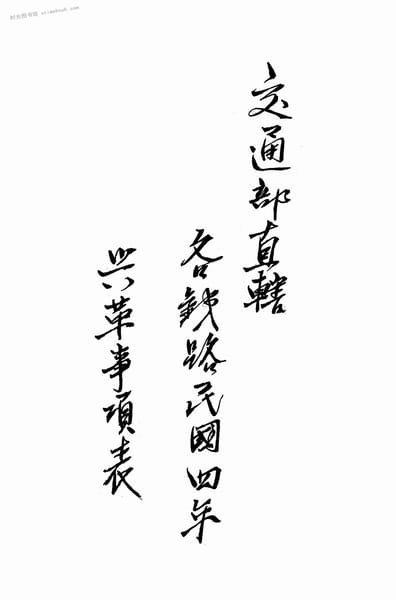 交通部直轄
各鉄路民國四年
兴革事項表
时光图书馆 stimebook.com